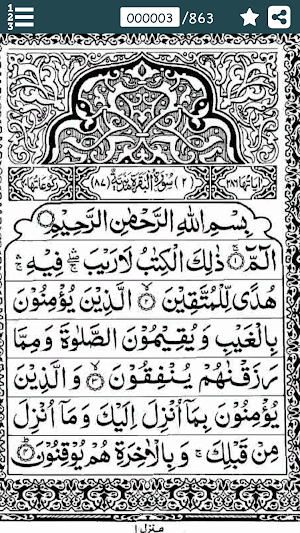 1
2
3
000003 /863
اٰیَاتُهَا ٢٨٦ (٢) سُوْرَةُ الْبَقَرَةِ مَدَنِيَّةٌ (٨٧) رُكُوْعَاتُهَا
بِسْمِ اللّٰهِ الرَّحْمٰنِ الرَّحِيْمِ
الٓمّٓ ۚ۝١ ذٰلِكَ الْكِتٰبُ لَا رَيْبَ ۛۖۚ فِيْهِ ۛۚ
هُدًى لِّلْمُتَّقِيْنَ ۙ۝٢ الَّذِيْنَ يُؤْمِنُوْنَ
بِالْغَيْبِ وَيُقِيْمُوْنَ الصَّلٰوةَ وَمِمَّا
رَزَقْنٰهُمْ يُنْفِقُوْنَ ۙ۝٣ وَالَّذِيْنَ
يُؤْمِنُوْنَ بِمَآ اُنْزِلَ اِلَيْكَ وَمَآ اُنْزِلَ
مِنْ قَبْلِكَ ۚ وَبِالْاٰخِرَةِ هُمْ يُوْقِنُوْنَ ۝٤
منزل ١